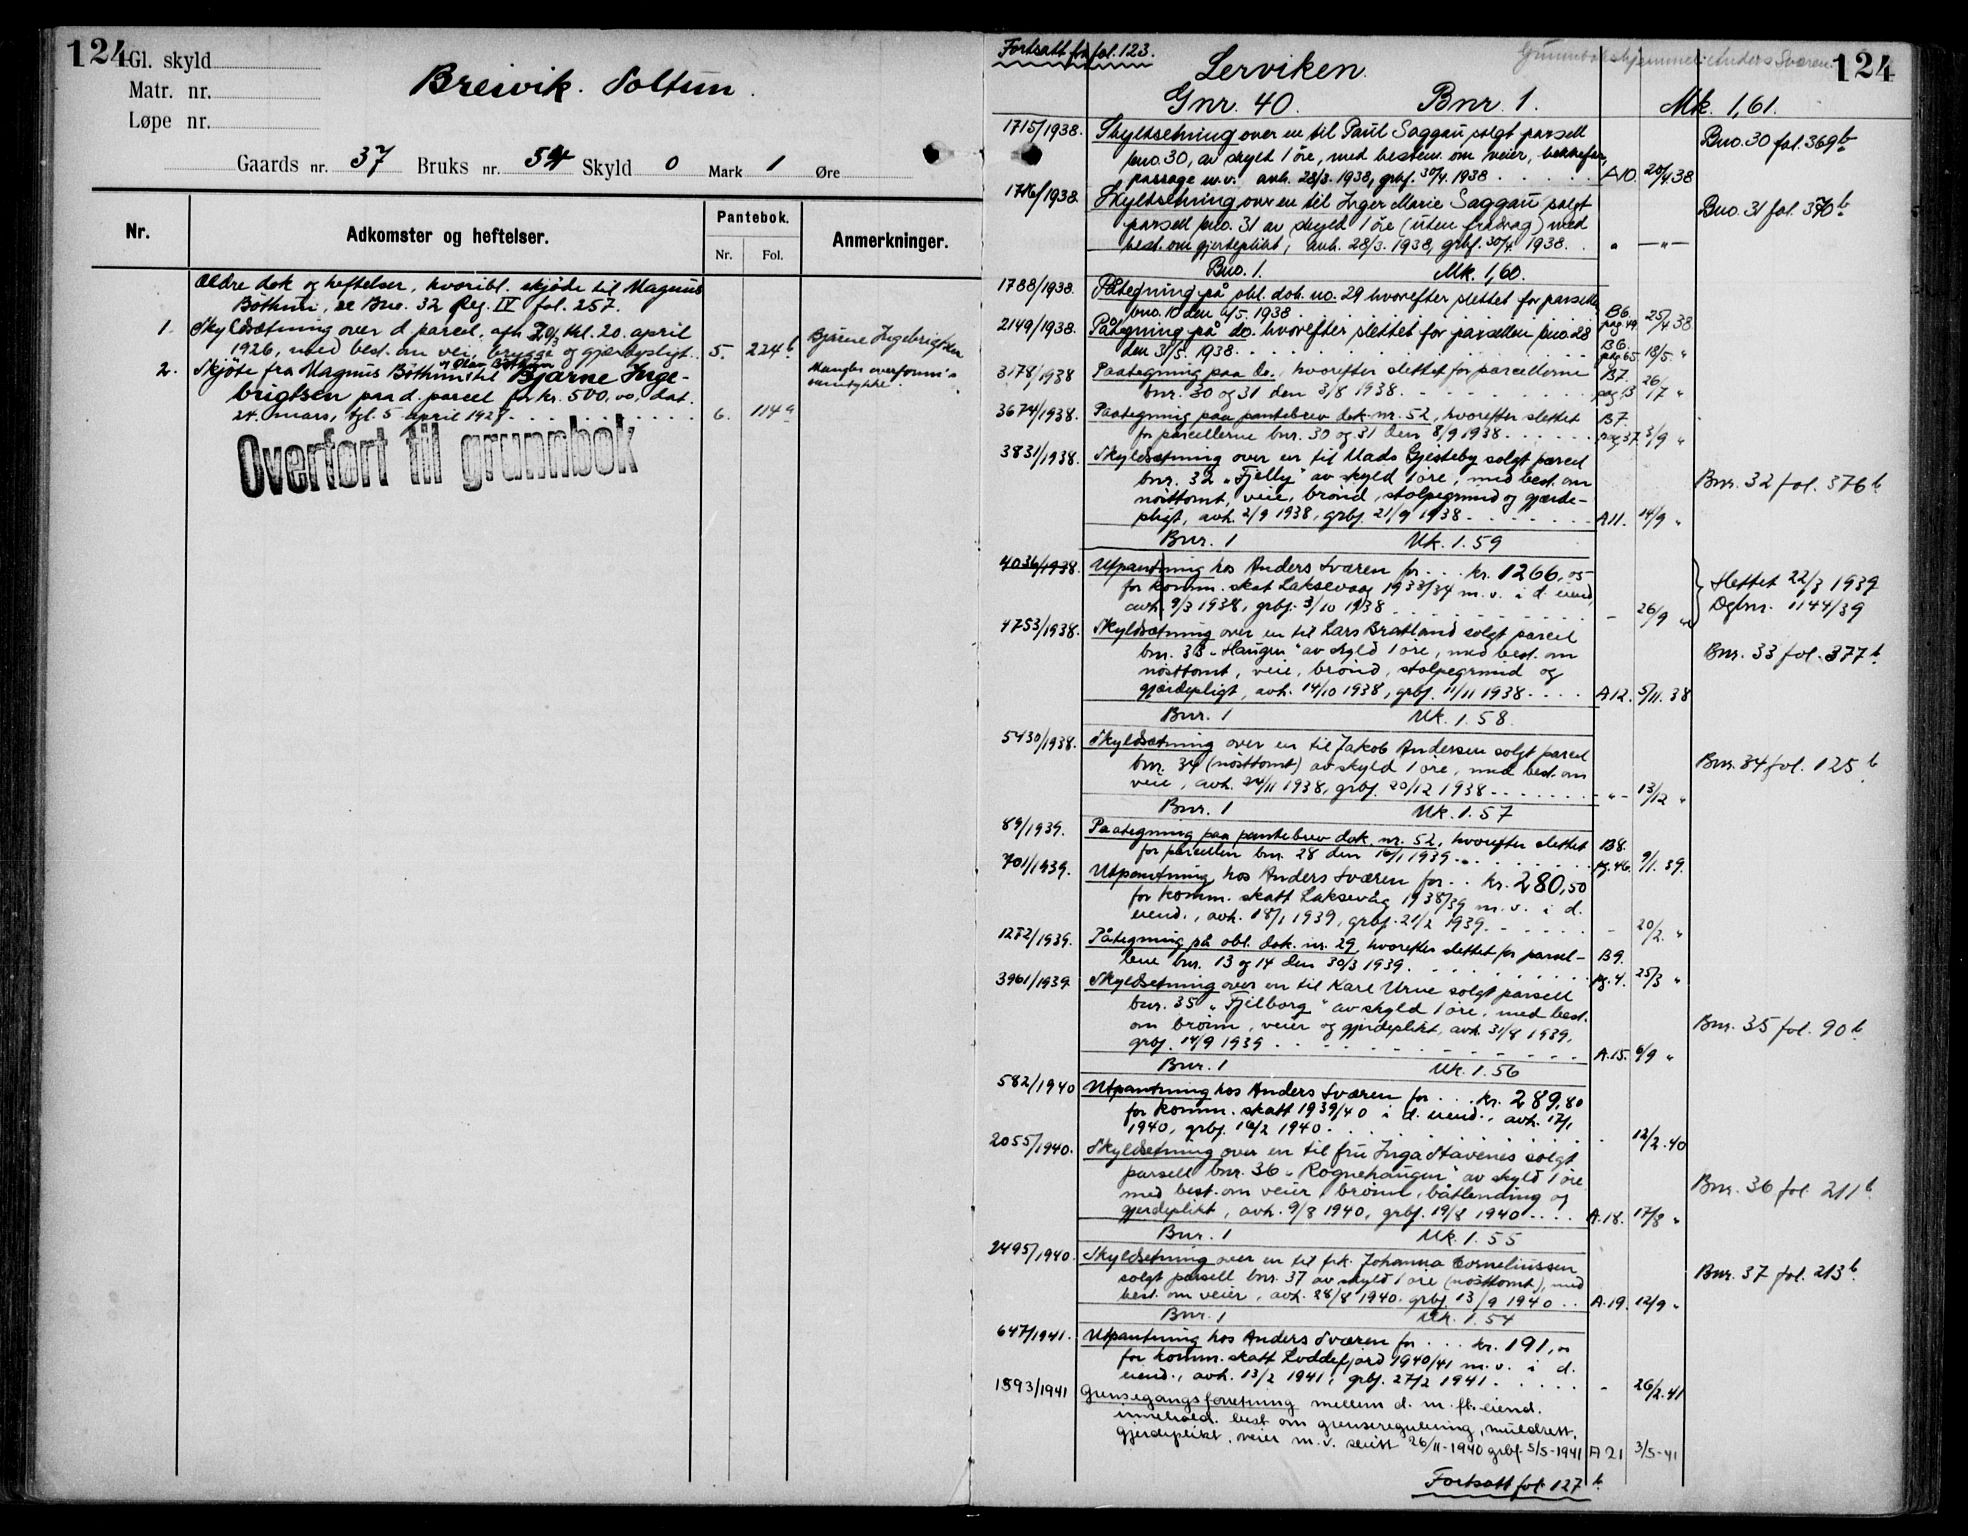 124
Gl. skyld
Matr. nr.
Løpe nr.
Breivik. Soltun.
Gaards nr. 37 Bruks nr. 54 Skyld 0 Mark 1 Øre
Nr. Adkomster og heftelser. Pantebok. Nr. Fol. Anmerkninger.
Ældre dok og heftelser, hvoribl. skjøde til Magnus
Bøthun, se Bno. 32 Reg. IV fol. 257.
1. Skyldsætning over d. parcel, afh. tgl. 20. april
1926, med best. om vei, brygge og gjærdepligt. 5. 224b Bjarne Ingebrigtsen
2. Skjøte fra Magnus Bøthun til Bjarne Inge-
og Olav Bøthun
brigtsen paa d. parcel for kr. 500.00, dat. Mangler overform's
samtykke.
24. mars, tgl. 5 april 1927. 6. 114a
Overført til grunnbok
Fortsatt fra fol. 123.
Grunnbokshjemmel: Anders Sværen.
124
Lerviken.
Gnr. 40. Bnr 1. Mk. 1,61.
1715/1938. Skyldsetning over en til Paul Saggau solgt parsell Bno. 30 fol. 369b
bno. 30, av skyld 1 øre, med bestem. om veier, bekkefar,
passage m.v. avh. 28/3. 1938, grbf. 30/4. 1938 A10. 20/4 38
1716/1938. Skyldsetning over en til Inger Marie Saggau solgt Bno. 31 fol. 370b
parsell bno. 31 av skyld 1 øre (uten fradrag) med
best. om gjerdeplikt, avh. 28/3. 1938, grbf. 30/4 1938. " — " —
Bno. 1. Mk. 1,60.
1788/1938. Påtegning på obl. dok. no. 29 hvorefter slettet for parsellen
bno. 10 den 6/5. 1938 B6. pag. 49 25/4 38
2149/1938. Påtegning på do. hvorefter slettet for parsellen bno. 28
den 31/5. 1938. B6. pag. 65 18/5. "
3178/1938 Paategning paa do., hvorefter slettet for parcellerne
bnr. 30 og 31 den 3/8 1938. B7. pag. 13 26/7 "
3674/1938. Paategning paa pantebrev dok. nr. 52, hvorefter slettet
for parcellerne bnr. 30 og 31 den 8/9 1938. B7. pag. 37. 3/9 "
3831/1938. Skyldsætning over en til Mads Gjesteby solgt parcel
bnr. 32 „Fjelly" av skyld 1 øre, med best. om Bnr. 32 fol. 376b
nøsttomt, veie, brønd, stolpegrund og gjærde-
pligt, avh. 2/9 1938, grbf. 21/9 1938. A11. 14/9 "
Bnr. 1 Mk. 1.59
4036/1938. Utpantning hos Anders Sværen for . . . kr. 1266,05
for komm. skat Laksevaag 1933/34 m.v. i d. eiend., Slettet 22/3 1939
avh. 9/3 1938, grbf. 3/10 1938 - 26/9 " Dgbnr. 1144/39
4753/1938. Skyldsætning over en til Lars Bratland solgt parcel
bnr. 33 „Haugen" av skyld 1 øre, med best. om Bnr. 33 fol. 377b
nøsttomt, veie, brønd, stolpegrund og
gjærdepligt, avh. 14/10 1938, grbf. 11/11 1938 A12. 5/11. 38
Bnr. 1 Mk. 1.58.
5430/1938. Skyldsætning over en til Jakob Andersen solgt parcel
bnr. 34 (nøsttomt) av skyld 1 øre, med best. om Bnr. 34 fol. 125b
veie, avh. 24/11 1938, grbf. 20/12 1938 - " - 13/12 "
Bnr. 1 Mk. 1.57
89/1939. Paategning paa pantebrev dok. nr. 52, hvorefter slettet
for parcellen bnr. 28 den 16/1 1939. B8. pg. 46. 9/1. 39.
701/1939. Utpantning hos Anders Sværen for . . kr. 280,50
for komm. skatt Laksevåg 1938/39 m.v. i d.
eiend., avh. 18/1 1939, grbf. 21/2 1939. - 20/2. "
1272/1939. Påtegning på obl. dok. nr. 29, hvorefter slettet for parsel-
lene bnr. 13 og 14 den 30/3 1939. B9. pg. 4. 25/3 "
3961/1939 Skyldsetning over en til Karl Urne solgt parsell
bnr. 35 „Fjellborg" av skyld 1 øre, med best.
om brønn, veier og gjerdeplikt, avh. 31/8 1939, Bnr. 35 fol. 90b
grbf. 14/9 1939 A.15. 6/9 "
Bnr. 1 Mk. 1.56
582/1940 Utpantning hos Anders Sværen for . . . kr. 289,80
for komm. skatt 1939/40 i d. eiend., avh. 17/1
1940, grbf. 16/2 1940. - 12/2. 40
2055/1940. Skyldsetning over en til fru Inga Stavenes solgt
parsell bnr. 36 „Rognehaugen" av skyld 1 øre Bnr. 36 fol. 211b
med best. om veier, brønn, båtlending og
gjerdeplikt, avh. 9/8 1940, grbf. 19/8 1940 A.18. 17/8 "
Bnr. 1 Mk. 1.55
2495/1940. Skyldsetning over en til frk. Johanna Corneliussen
solgt parsell bnr. 37 av skyld 1 øre (nøsttomt), med Bnr. 37 fol. 213b.
best. om veier, avh. 28/8 1940. grbf. 13/9 1940 A.19. 12/9 "
Bnr. 1 Mk. 1.54
647/1941. Utpantning hos Anders Sværen for . . . kr. 191,00
for komm. skatt Loddefjord 1940/41 m.v. i d.
eiend., avh. 13/2 1941, grbf. 27/2 1941. - 26/2. 41
1593/1941 Grensegangsforretning mellem d. m. fl. eiend.
innehold. best om grenseregulering, muldrett,
gjerdeplikt, veier m.v. sluitt 26/11-1940 grbf. 5/5-1941 A 21 3/5-41
Fortsatt fol 127b